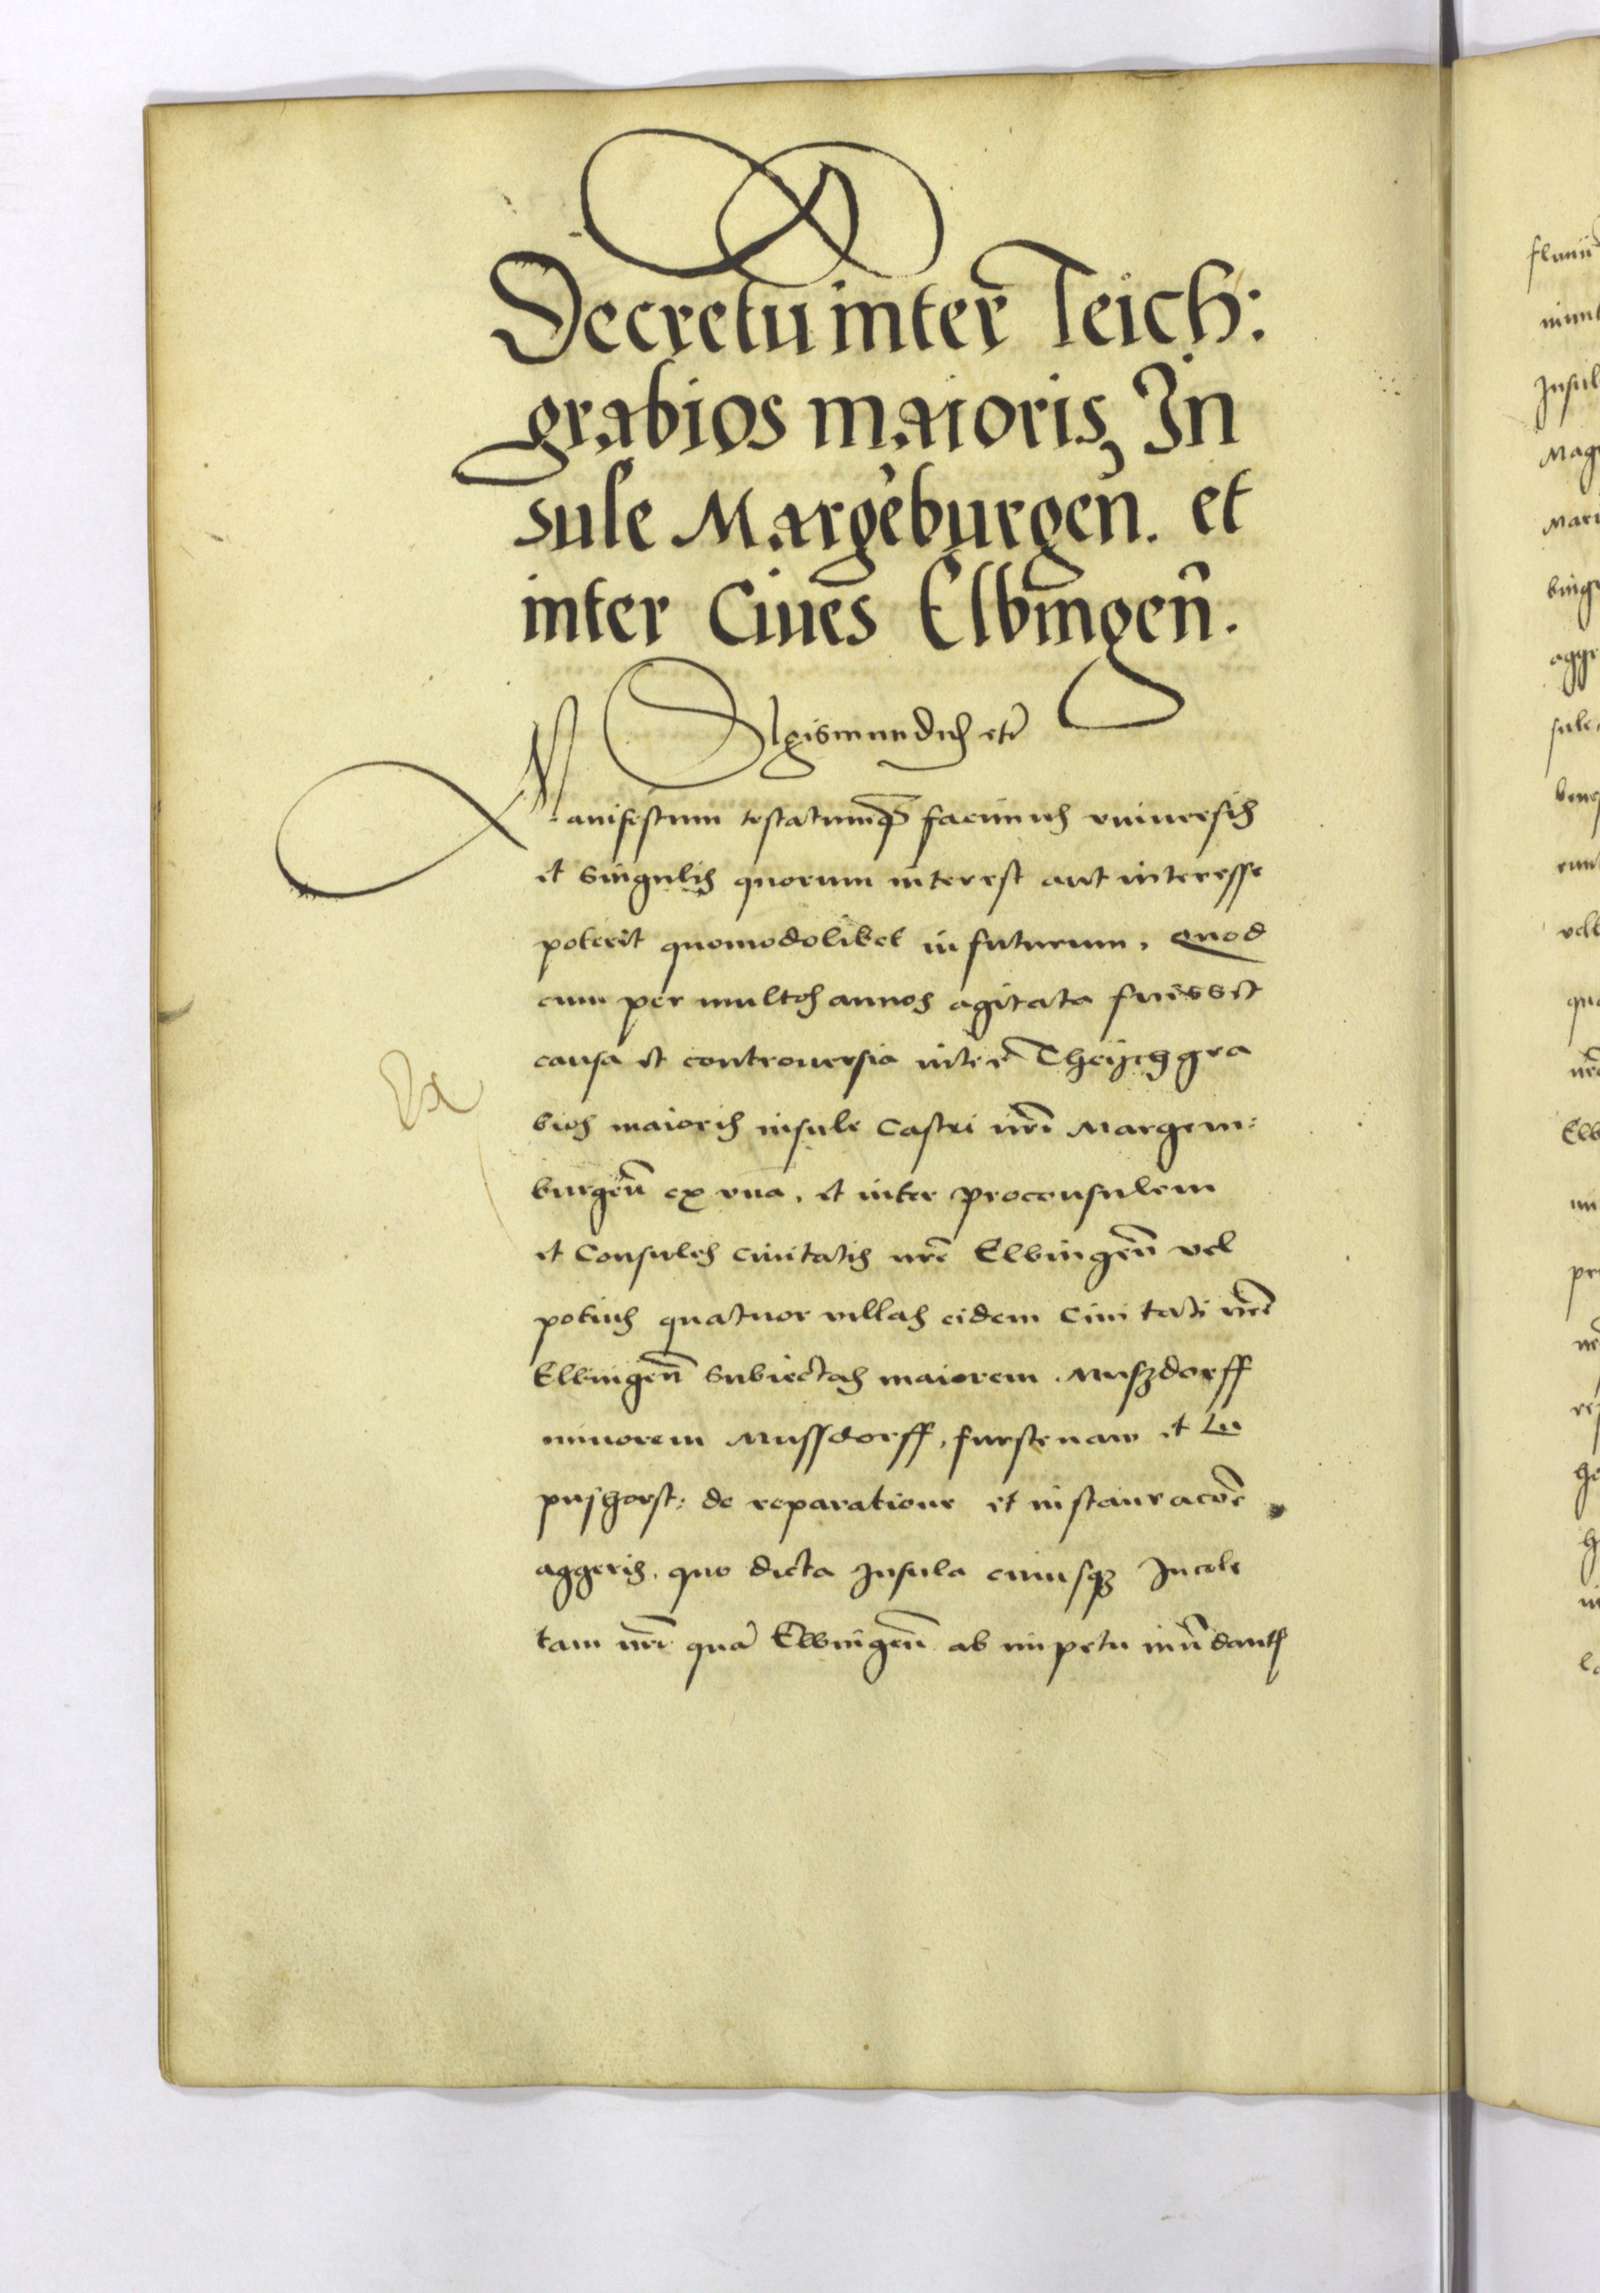 Decretu inter Teich:
grabios maioris, In
sule Margēburgen̄. et
inter Ciues Elbingen̄.
Sigismundus etc̄
Manifestum testatumq̄ facimus vniuersis
et singulis quorum interest aut interesse
poterit quomodolibet in futurum, Quod
cum per multos annos agitata fuisset
causa et controuersia inter Theijchgra
bios maioris insule castri nr̄i Margem:
burgen̄ ex vna, et inter proconsulem
et Consules ciuitatis nr̄e Elbingen̄ vel
potius quatuor villas eidem Ciuitati nr̄e
Elbingen̄ subiectas maiorem Muszdorff
minorem Mussdorff, furstenaw et Lu
pushorst: de reparatione et instauracōe
aggeris, quo dicta Insula eiusqz Incole
tam nr̄i quā Elbingen̄ ab impetu inūdantis
fluuii
Insul
Mag
Mari
bing
agge
sule
Elb